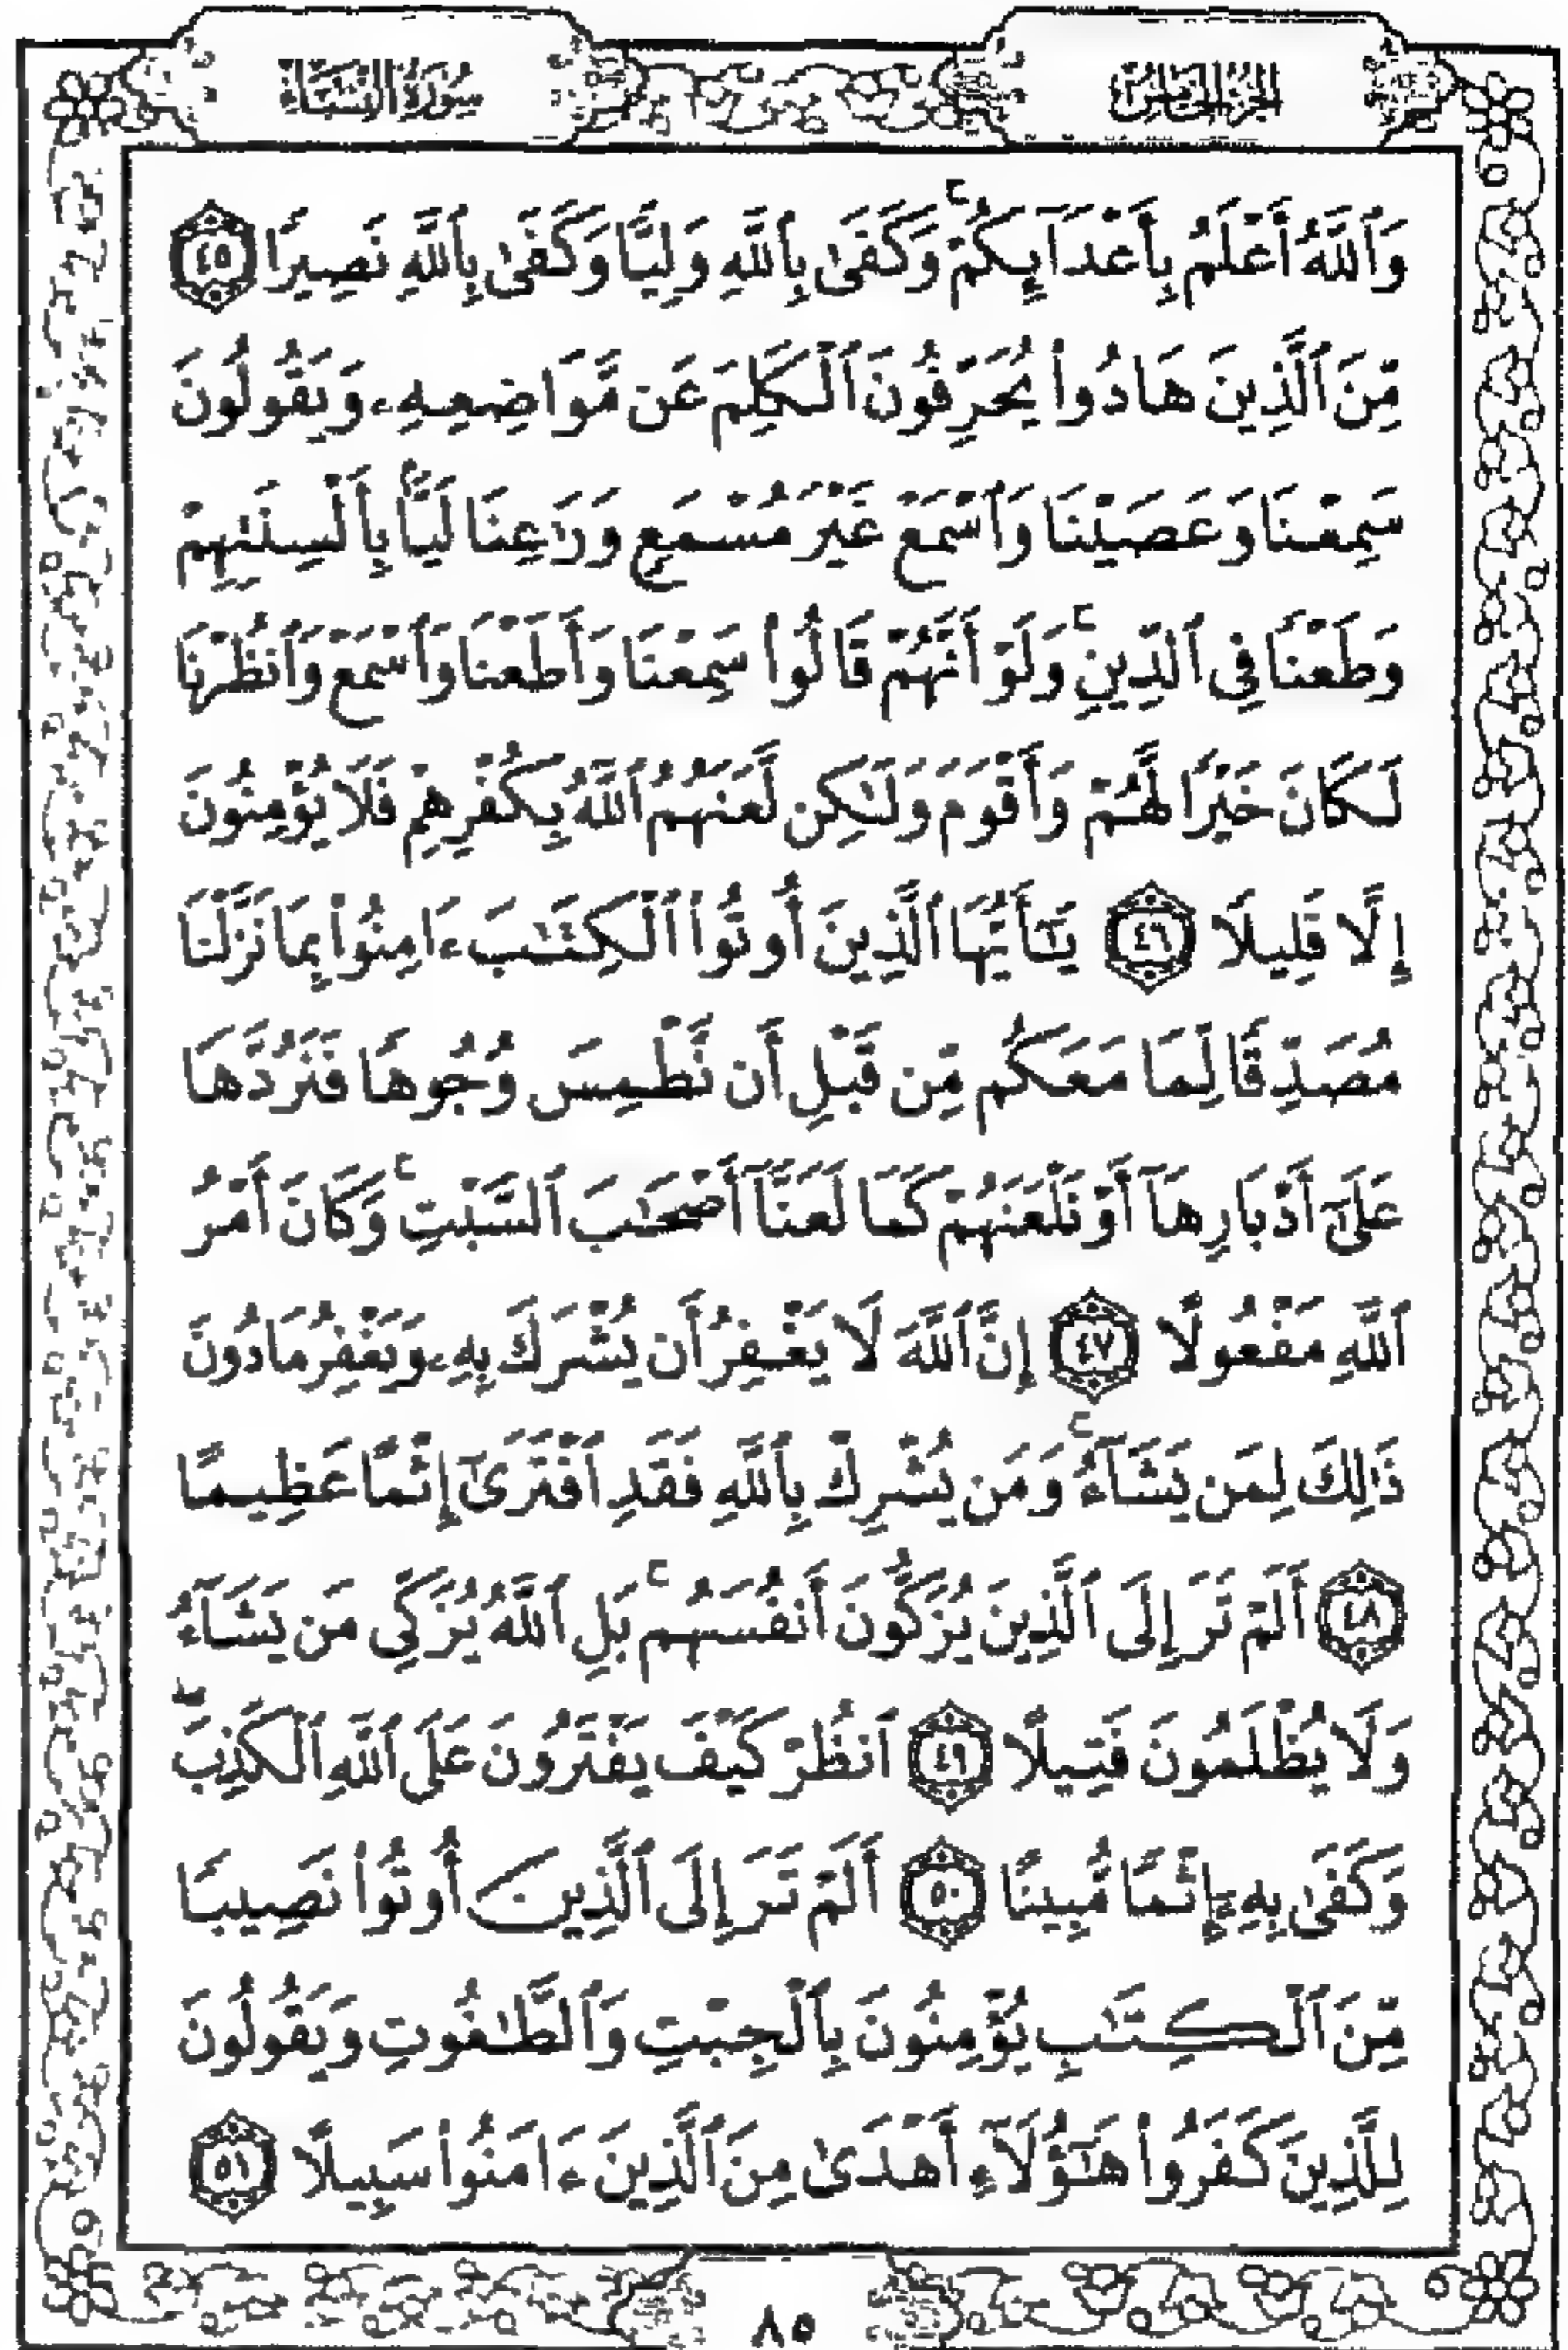 الجزء الخامس
سورة النساء
وَٱللَّهُ أَعْلَمُ بِأَعْدَآئِكُمْ ۚ وَكَفَىٰ بِٱللَّهِ وَلِيًّا وَكَفَىٰ بِٱللَّهِ نَصِيرًا ٤٥
مِّنَ ٱلَّذِينَ هَادُوا۟ يُحَرِّفُونَ ٱلْكَلِمَ عَن مَّوَاضِعِهِۦ وَيَقُولُونَ
سَمِعْنَا وَعَصَيْنَا وَٱسْمَعْ غَيْرَ مُسْمَعٍ وَرَٰعِنَا لَيًّۢا بِأَلْسِنَتِهِمْ
وَطَعْنًا فِى ٱلدِّينِ ۚ وَلَوْ أَنَّهُمْ قَالُوا۟ سَمِعْنَا وَأَطَعْنَا وَٱسْمَعْ وَٱنظُرْنَا
لَكَانَ خَيْرًا لَّهُمْ وَأَقْوَمَ وَلَٰكِن لَّعَنَهُمُ ٱللَّهُ بِكُفْرِهِمْ فَلَا يُؤْمِنُونَ
إِلَّا قَلِيلًا ٤٦ يَٰٓأَيُّهَا ٱلَّذِينَ أُوتُوا۟ ٱلْكِتَٰبَ ءَامِنُوا۟ بِمَا نَزَّلْنَا
مُصَدِّقًا لِّمَا مَعَكُم مِّن قَبْلِ أَن نَّطْمِسَ وُجُوهًا فَنَرُدَّهَا
عَلَىٰٓ أَدْبَارِهَآ أَوْ نَلْعَنَهُمْ كَمَا لَعَنَّآ أَصْحَٰبَ ٱلسَّبْتِ ۚ وَكَانَ أَمْرُ
ٱللَّهِ مَفْعُولًا ٤٧ إِنَّ ٱللَّهَ لَا يَغْفِرُ أَن يُشْرَكَ بِهِۦ وَيَغْفِرُ مَا دُونَ
ذَٰلِكَ لِمَن يَشَآءُ ۚ وَمَن يُشْرِكْ بِٱللَّهِ فَقَدِ ٱفْتَرَىٰٓ إِثْمًا عَظِيمًا
٤٨ أَلَمْ تَرَ إِلَى ٱلَّذِينَ يُزَكُّونَ أَنفُسَهُم ۚ بَلِ ٱللَّهُ يُزَكِّى مَن يَشَآءُ
وَلَا يُظْلَمُونَ فَتِيلًا ٤٩ ٱنظُرْ كَيْفَ يَفْتَرُونَ عَلَى ٱللَّهِ ٱلْكَذِبَ ۖ
وَكَفَىٰ بِهِۦٓ إِثْمًا مُّبِينًا ٥٠ أَلَمْ تَرَ إِلَى ٱلَّذِينَ أُوتُوا۟ نَصِيبًا
مِّنَ ٱلْكِتَٰبِ يُؤْمِنُونَ بِٱلْجِبْتِ وَٱلطَّٰغُوتِ وَيَقُولُونَ
لِلَّذِينَ كَفَرُوا۟ هَٰٓؤُلَآءِ أَهْدَىٰ مِنَ ٱلَّذِينَ ءَامَنُوا۟ سَبِيلًا ٥١
٨٥